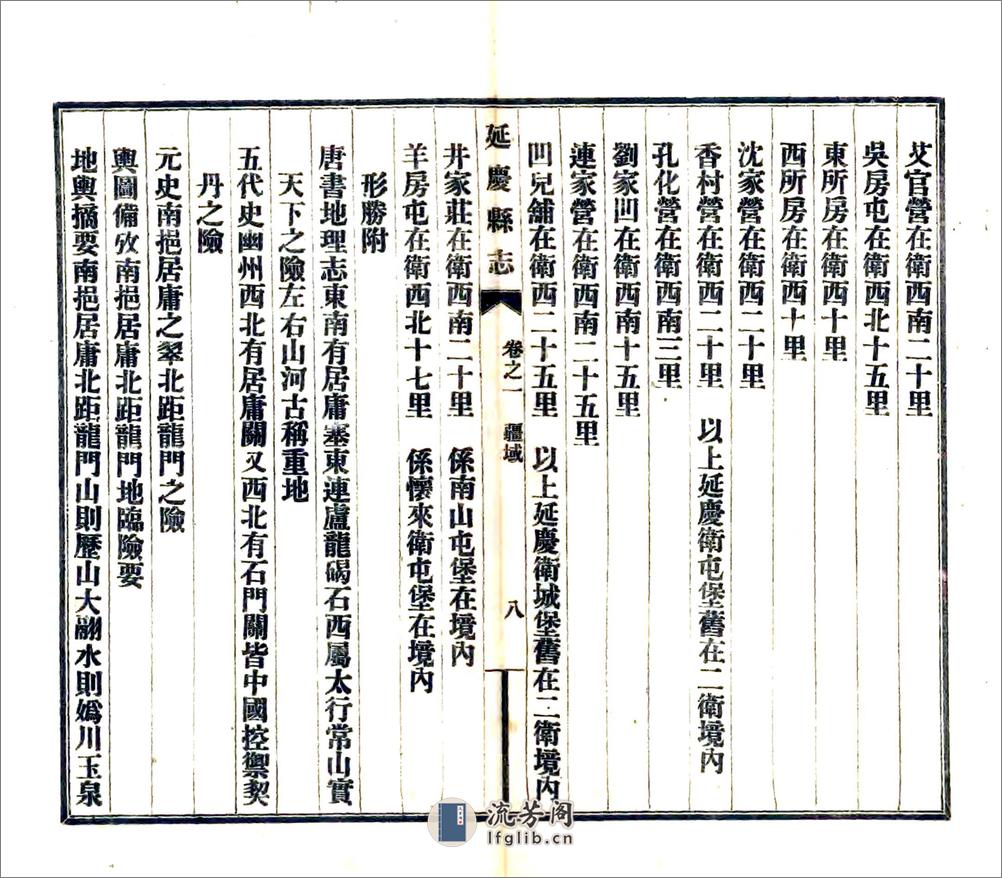 艾官營在衛西南二十里
吳房屯在衛西北十五里
東所房在衛西十里
西所房在衛西十里
沈家營在衛西二十里
香村營在衛西二十里　以上延慶衛屯堡舊在二衛境內
孔化營在衛西南三里
劉家凹在衛西南十五里
連家營在衛西南二十五里
凹兒舖在衛西二十五里　以上延慶衛城堡舊在二衛境內
延慶縣志　卷之一　疆域　八
井家莊在衛西南二十里　係南山屯堡在境內
羊房屯在衛西北十七里　係懷來衛屯堡在境內
形勝附
唐書地理志東南有居庸塞東連盧龍碣石西屬太行常山實
天下之險左右山河古稱重地
五代史幽州西北有居庸關又西北有石門關皆中國控禦契
丹之險
元史南挹居庸之翠北距龍門之險
輿圖備攷南挹居庸北距龍門地臨險要
地輿摘要南挹居庸北距龍門山則歷山大翮水則媯川玉泉
流芳阁
lfglib.cn